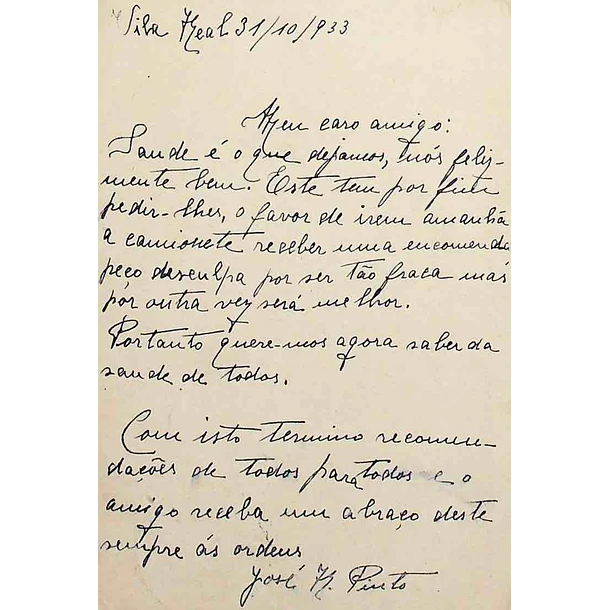 Vila Real 31/10/933
Meu caro amigo:
Saude é o que dejamos, nós feliz-
mente bem. Este tem por fim
pedir-lhes, o favor de irem amanhã
a camionete receber uma encomenda
peço desculpa por ser tão fraca mas
por outra vez será melhor.
Portanto quere-mos agora saber da
saude de todos.
Com isto termino recomen-
dações de todos para todos e o
amigo receba um abraço deste
sempre ás ordens
José M. Pinto